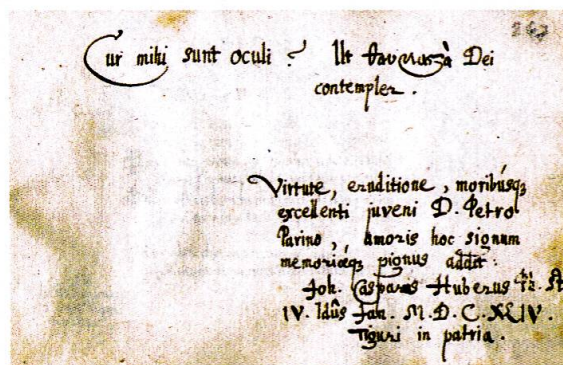 267
Cur mihi sunt oculi? Ut θαυμασὰ Dei
contempler.
Virtute, eruditione, moribusq₃
excellenti juveni D. Petro
Parino, amoris hoc signum
memoriæq₃ pignus addit:
Joh. Casparus Huberus
IV. Idûs Jan. M.D.C.XLIV.
Tiguri in patria.